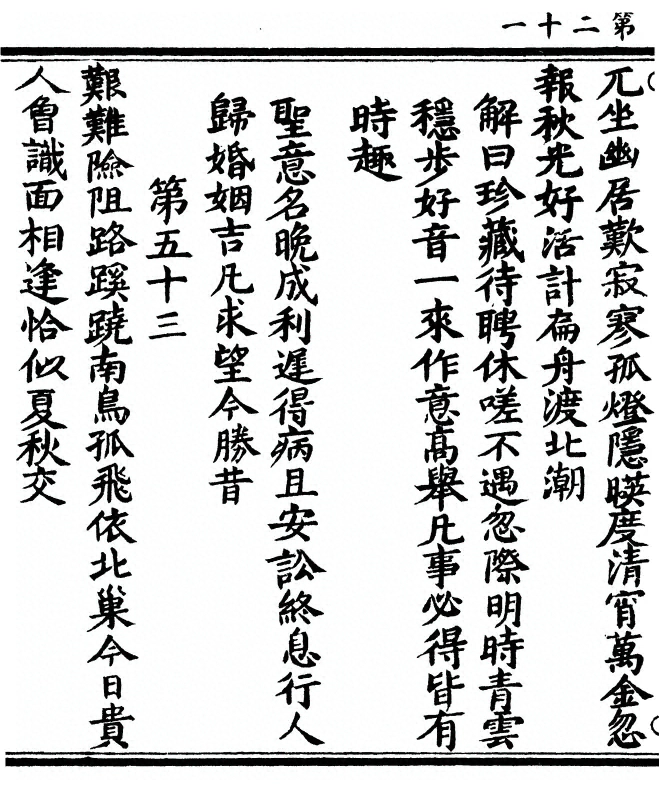 第二十一
兀坐幽居歎寂寥孤燈隱暎度清宵萬金忽
報秋光好活計扁舟渡北潮
解曰珍藏待聘休嗟不遇忽際明時青雲
穩步好音一來作意高舉凡事必得皆有
時趣
聖意名晚成利遲得病且安訟終息行人
歸婚姻吉凡求望今勝昔
第五十三
艱難險阻路蹊蹺南鳥孤飛依北巢今日貴
人曾識面相逢恰似夏秋交